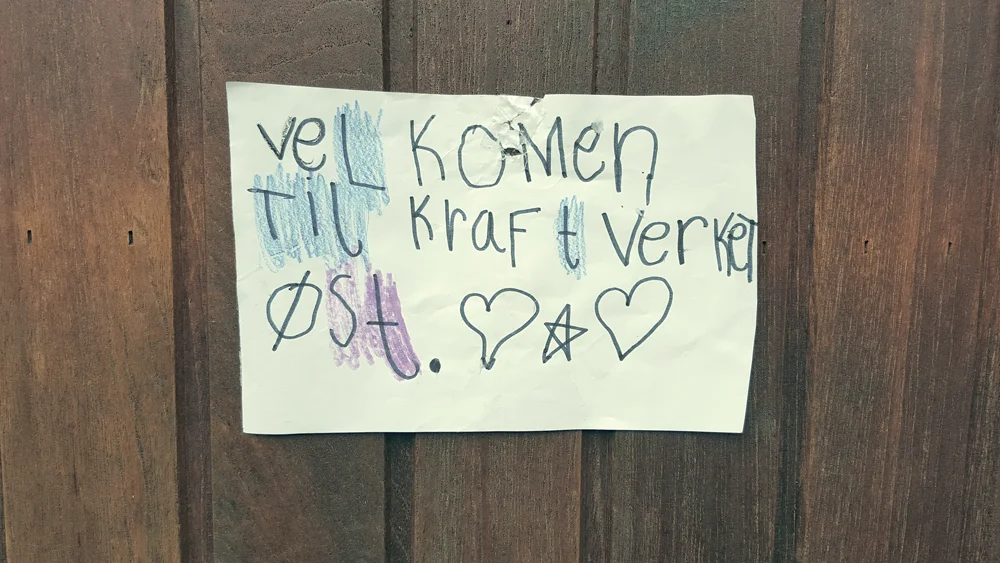 VeL KOMen
TiL KraFt VerKeT
ØSt.